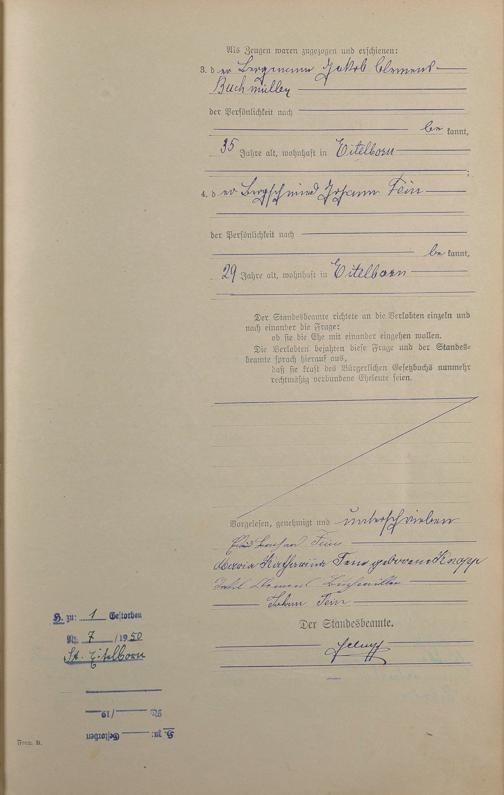 Als Zeugen waren zugezogen und erschienen:
3. der Bergmann Jakob Clemens
Buchmüller
der Persönlichkeit nach
be kannt,
35 Jahre alt, wohnhaft in Eitelborn
4. der Bergschmied Johann Fein
der Persönlichkeit nach
be kannt,
29 Jahre alt, wohnhaft in Eitelborn
Der Standesbeamte richtete an die Verlobten einzeln und
nach einander die Frage:
ob sie die Ehe mit einander eingehen wollen.
Die Verlobten bejahten diese Frage und der Standes-
beamte sprach hierauf aus,
daß sie kraft des Bürgerlichen Gesetzbuchs nunmehr
rechtmäßig verbundene Eheleute seien.
Vorgelesen, genehmigt und unterschrieben
Fein
Maria Katharina Fein geborene Knopp
Jakob Clemens Buchmüller
Johann Fein
Der Standesbeamte.
H. zu: 1 Gestorben
Nr. 7 /1950
St. Eitelborn
H. zu: Gestorben
Nr. /19
Form. B.